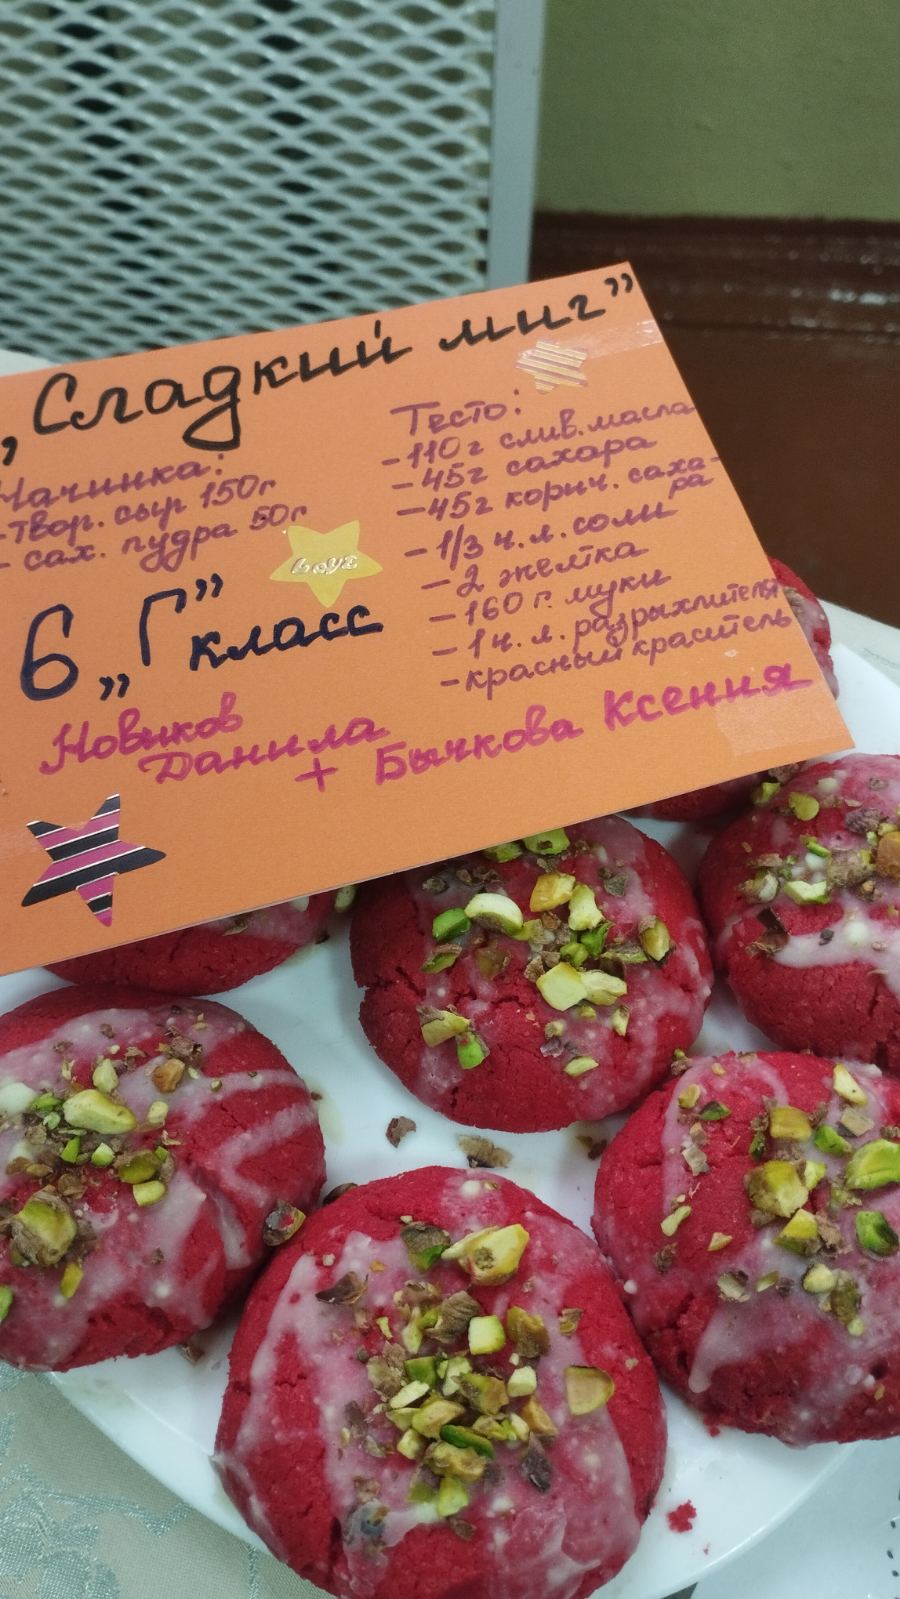 „Сладкий миг”
Начинка:
-твор. сыр 150г
- сах. пудра 50г
6 „Г” класс
Тесто:
-110г слив. масла
-45г сахара
-45г корич. саха-
ра
-1/3 ч.л. соли
-2 желтка
-160г. муки
-1ч. л. разрыхлителя
-красный краситель
Новиков
Данила
+ Бычкова Ксения